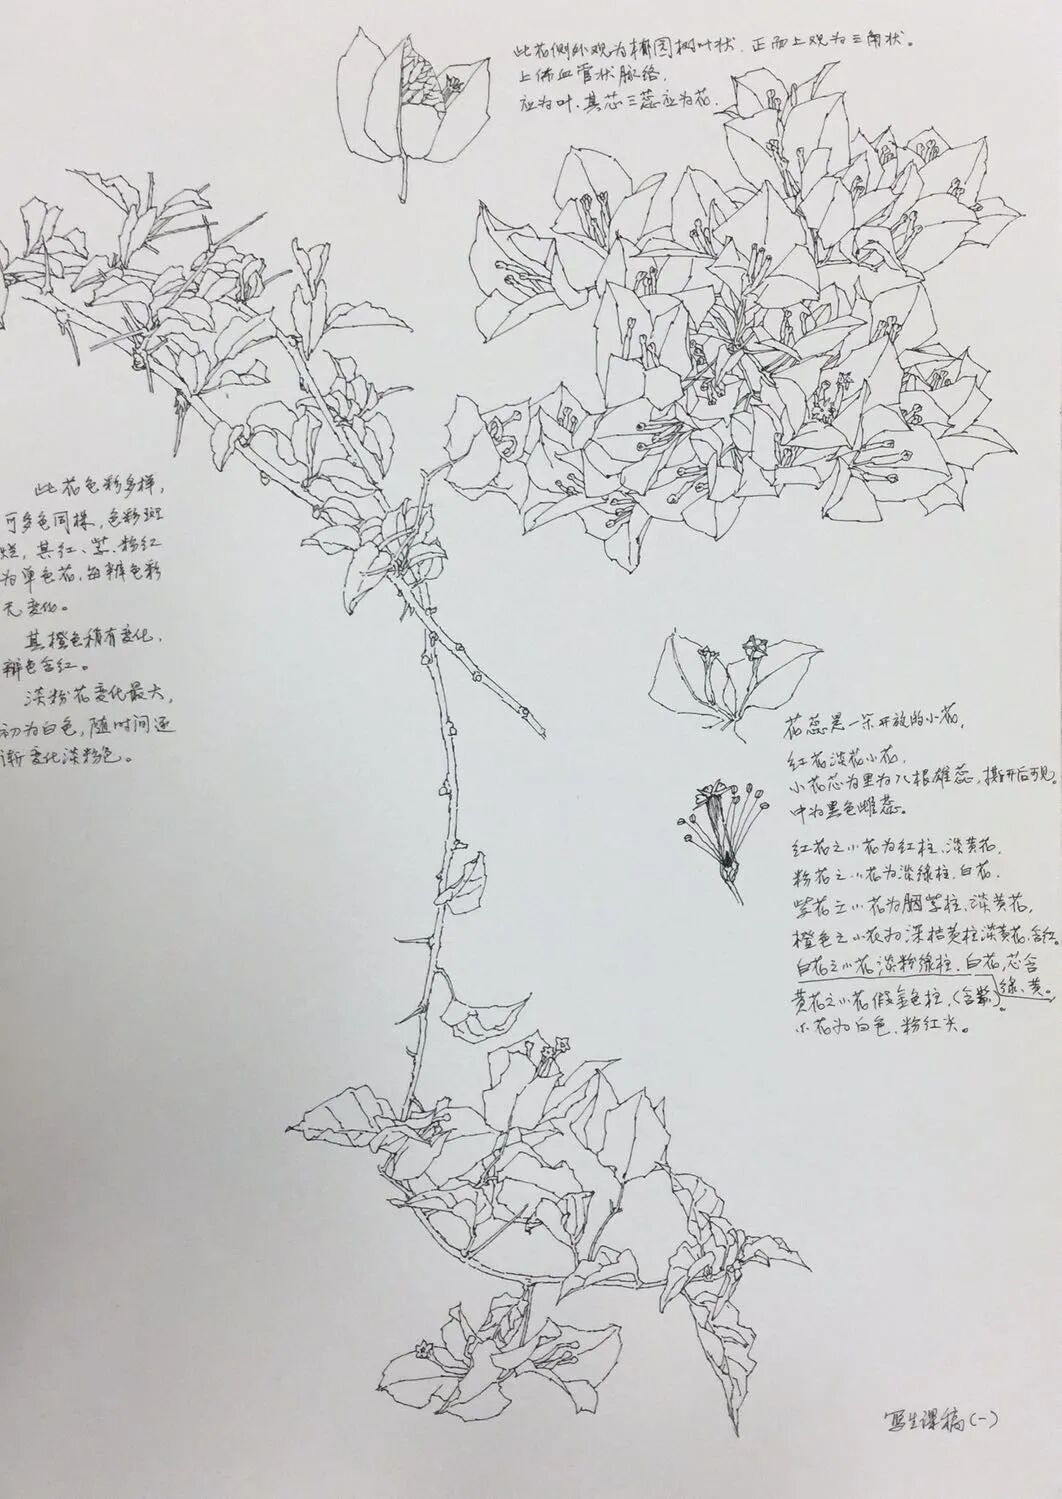 此花侧外观为椭圆树叶状.正面上观为三角状。
上佈血管状脉络,
应为叶.其芯三蕊应为花.
此花色彩多样,
可多色同株,色彩斑
烂,其红、紫、粉红
为单色花,每瓣色彩
无变化。
其橙色稍有变化,
瓣色含红。
淡粉花变化最大,
初为白色,随时间逐
渐变化淡粉色。
花蕊是一朵开放的小花,
红花淡花小花,
小花芯为里为八根雄蕊,撕开后可见。
中为黑色雌蕊。
红花之小花为红柱、淡黄花,
粉花之小花为淡绿柱,白花,
紫花之小花为胭紫柱、淡黄花,
橙色之小花为深桔黄柱淡黄花,含红。
白花之小花淡粉绿柱.白花,芯含
绿、黄。
黄花之小花假金色柱,(含紫)。
小花为白色、粉红尖。
写生课稿(一)